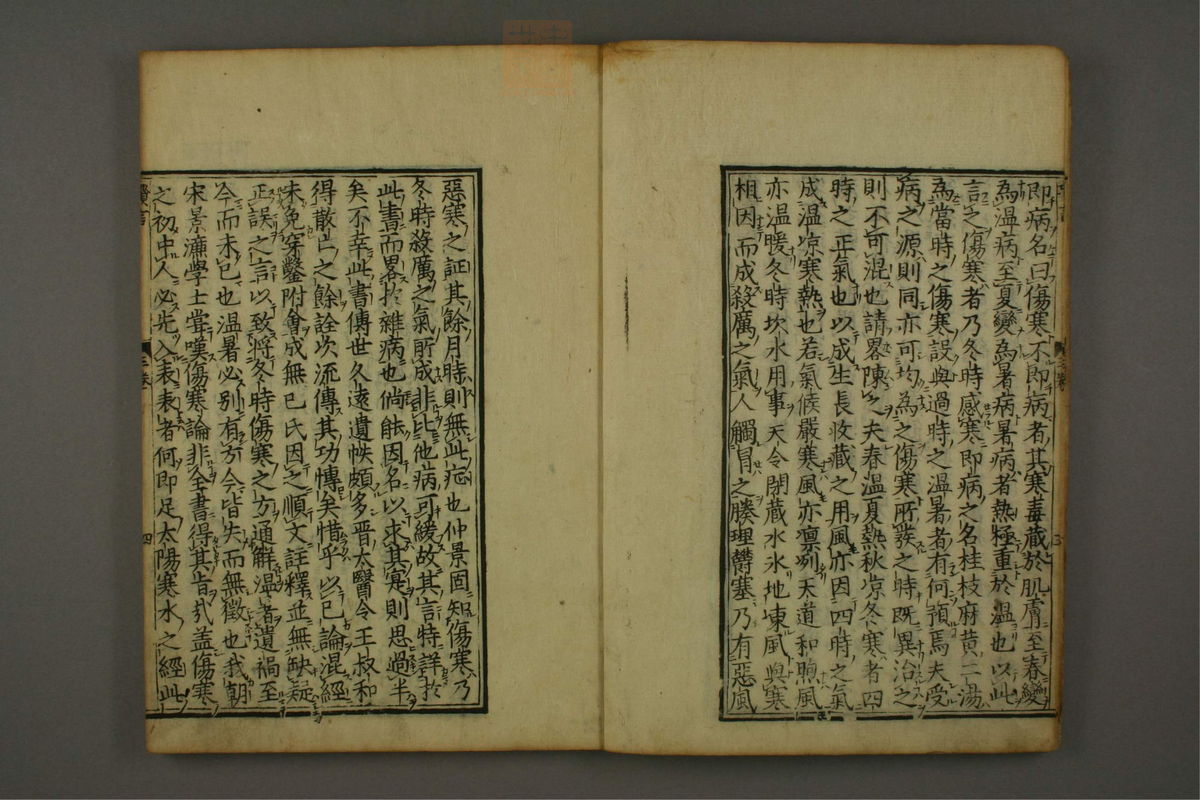 即病名曰傷寒不即病者其寒毒藏於肌膚至春變
為温病至夏變為暑病暑病者熱極重於温也以此
言之傷寒者乃冬時感寒即病之名桂枝麻黄二湯
為當時之傷寒設與過時之温暑者有何預焉夫受
病之源則同亦可均為之傷寒所發之時既異治之
則不可混也請畧陳之夫春温夏熱秋凉冬寒者四
時之正氣也以成生長收藏之用風亦因四時之氣
成温凉寒熱也若氣候嚴寒風亦凛冽天道和煦風
亦温暖冬時坎水用事天令閉藏水氷地凍風與寒
相因而成殺厲之氣人觸冒之腠理欝塞乃有惡風
惡寒之証其餘月時則無此症也仲景固知傷寒乃
冬時殺厲之氣所成非比他病可緩故其言特詳於
此書而畧於雜病也倘能因名以求其寔則思過半
矣不幸此書傳世久遠遺帙頗多晋太醫令王叔和
得散亡之餘詮次流傳其功博矣惜乎以已論混經
未免穿鑿附會成無已氏因之順文註釋並無缺疑
正誤之言以致将冬時傷寒之方通解温暑遺禍至
今而未已也温暑必别有方今皆失而無徵也我朝
宋景濂學士嘗嘆傷寒論非全書得其旨哉盖傷寒
之初中人必先入表表者何即足太陽寒水之經此
三卷
四